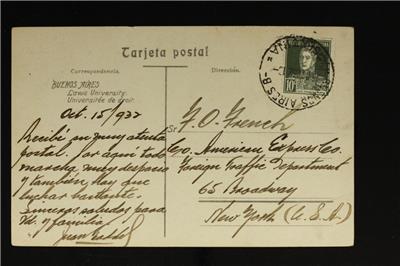 Tarjeta postal
Correspondencia.
Dirección.
BUENOS AIRES
Lawic University.
Université de droit.
Oct. 15/932
Recibí su muy atenta
postal. Por aquí todo
marcha muy despacio
y también, hay que
luchar bastante.
Sinceros saludos para
Ud. y familia
Juan
Sr. F. O. French
c/o American Express Co.
Foreign Traffic Department
65 Broadway
New York (U.S.A.)
BUENOS AIRES-8
10